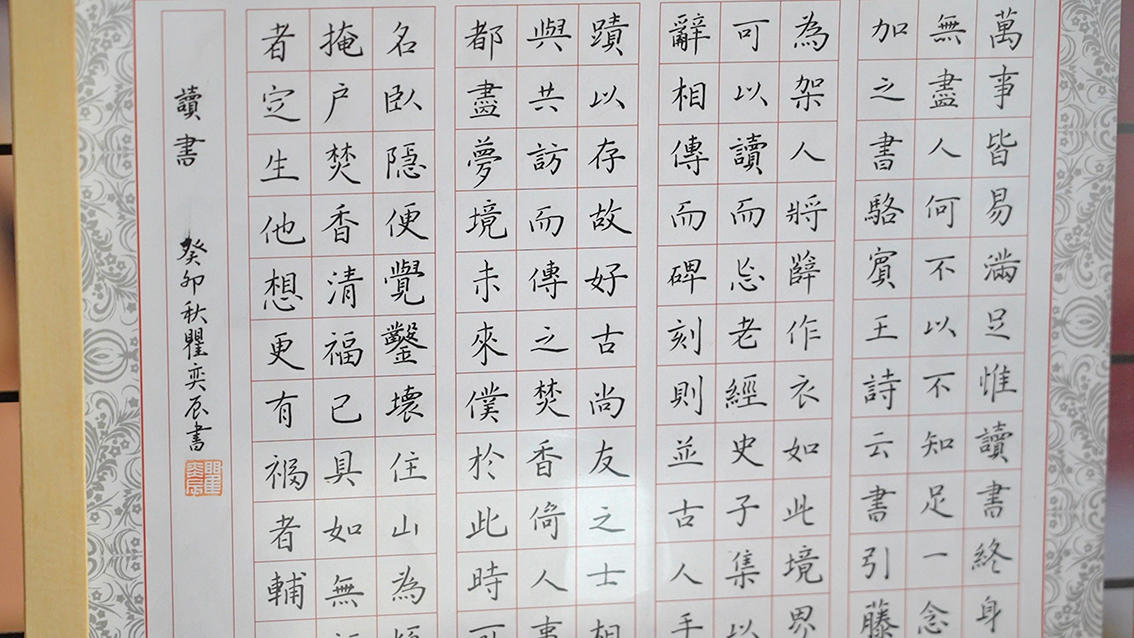 萬事皆易滿足惟讀書終身
無盡人何不以不知足一念
加之書駱賓王詩云書引藤
為架人將薜作衣如此境界
可以讀而忘老經史子集以
辭相傳而碑刻則並古人手
蹟以存故好古尚友之士相
與共訪而傳之焚香倚人事
都盡夢境未來僕於此時可
名臥隱便覺鑿壞住山為
掩户焚香清福已具如無
者定生他想更有福者輔
讀書
癸卯秋瞿奕辰書